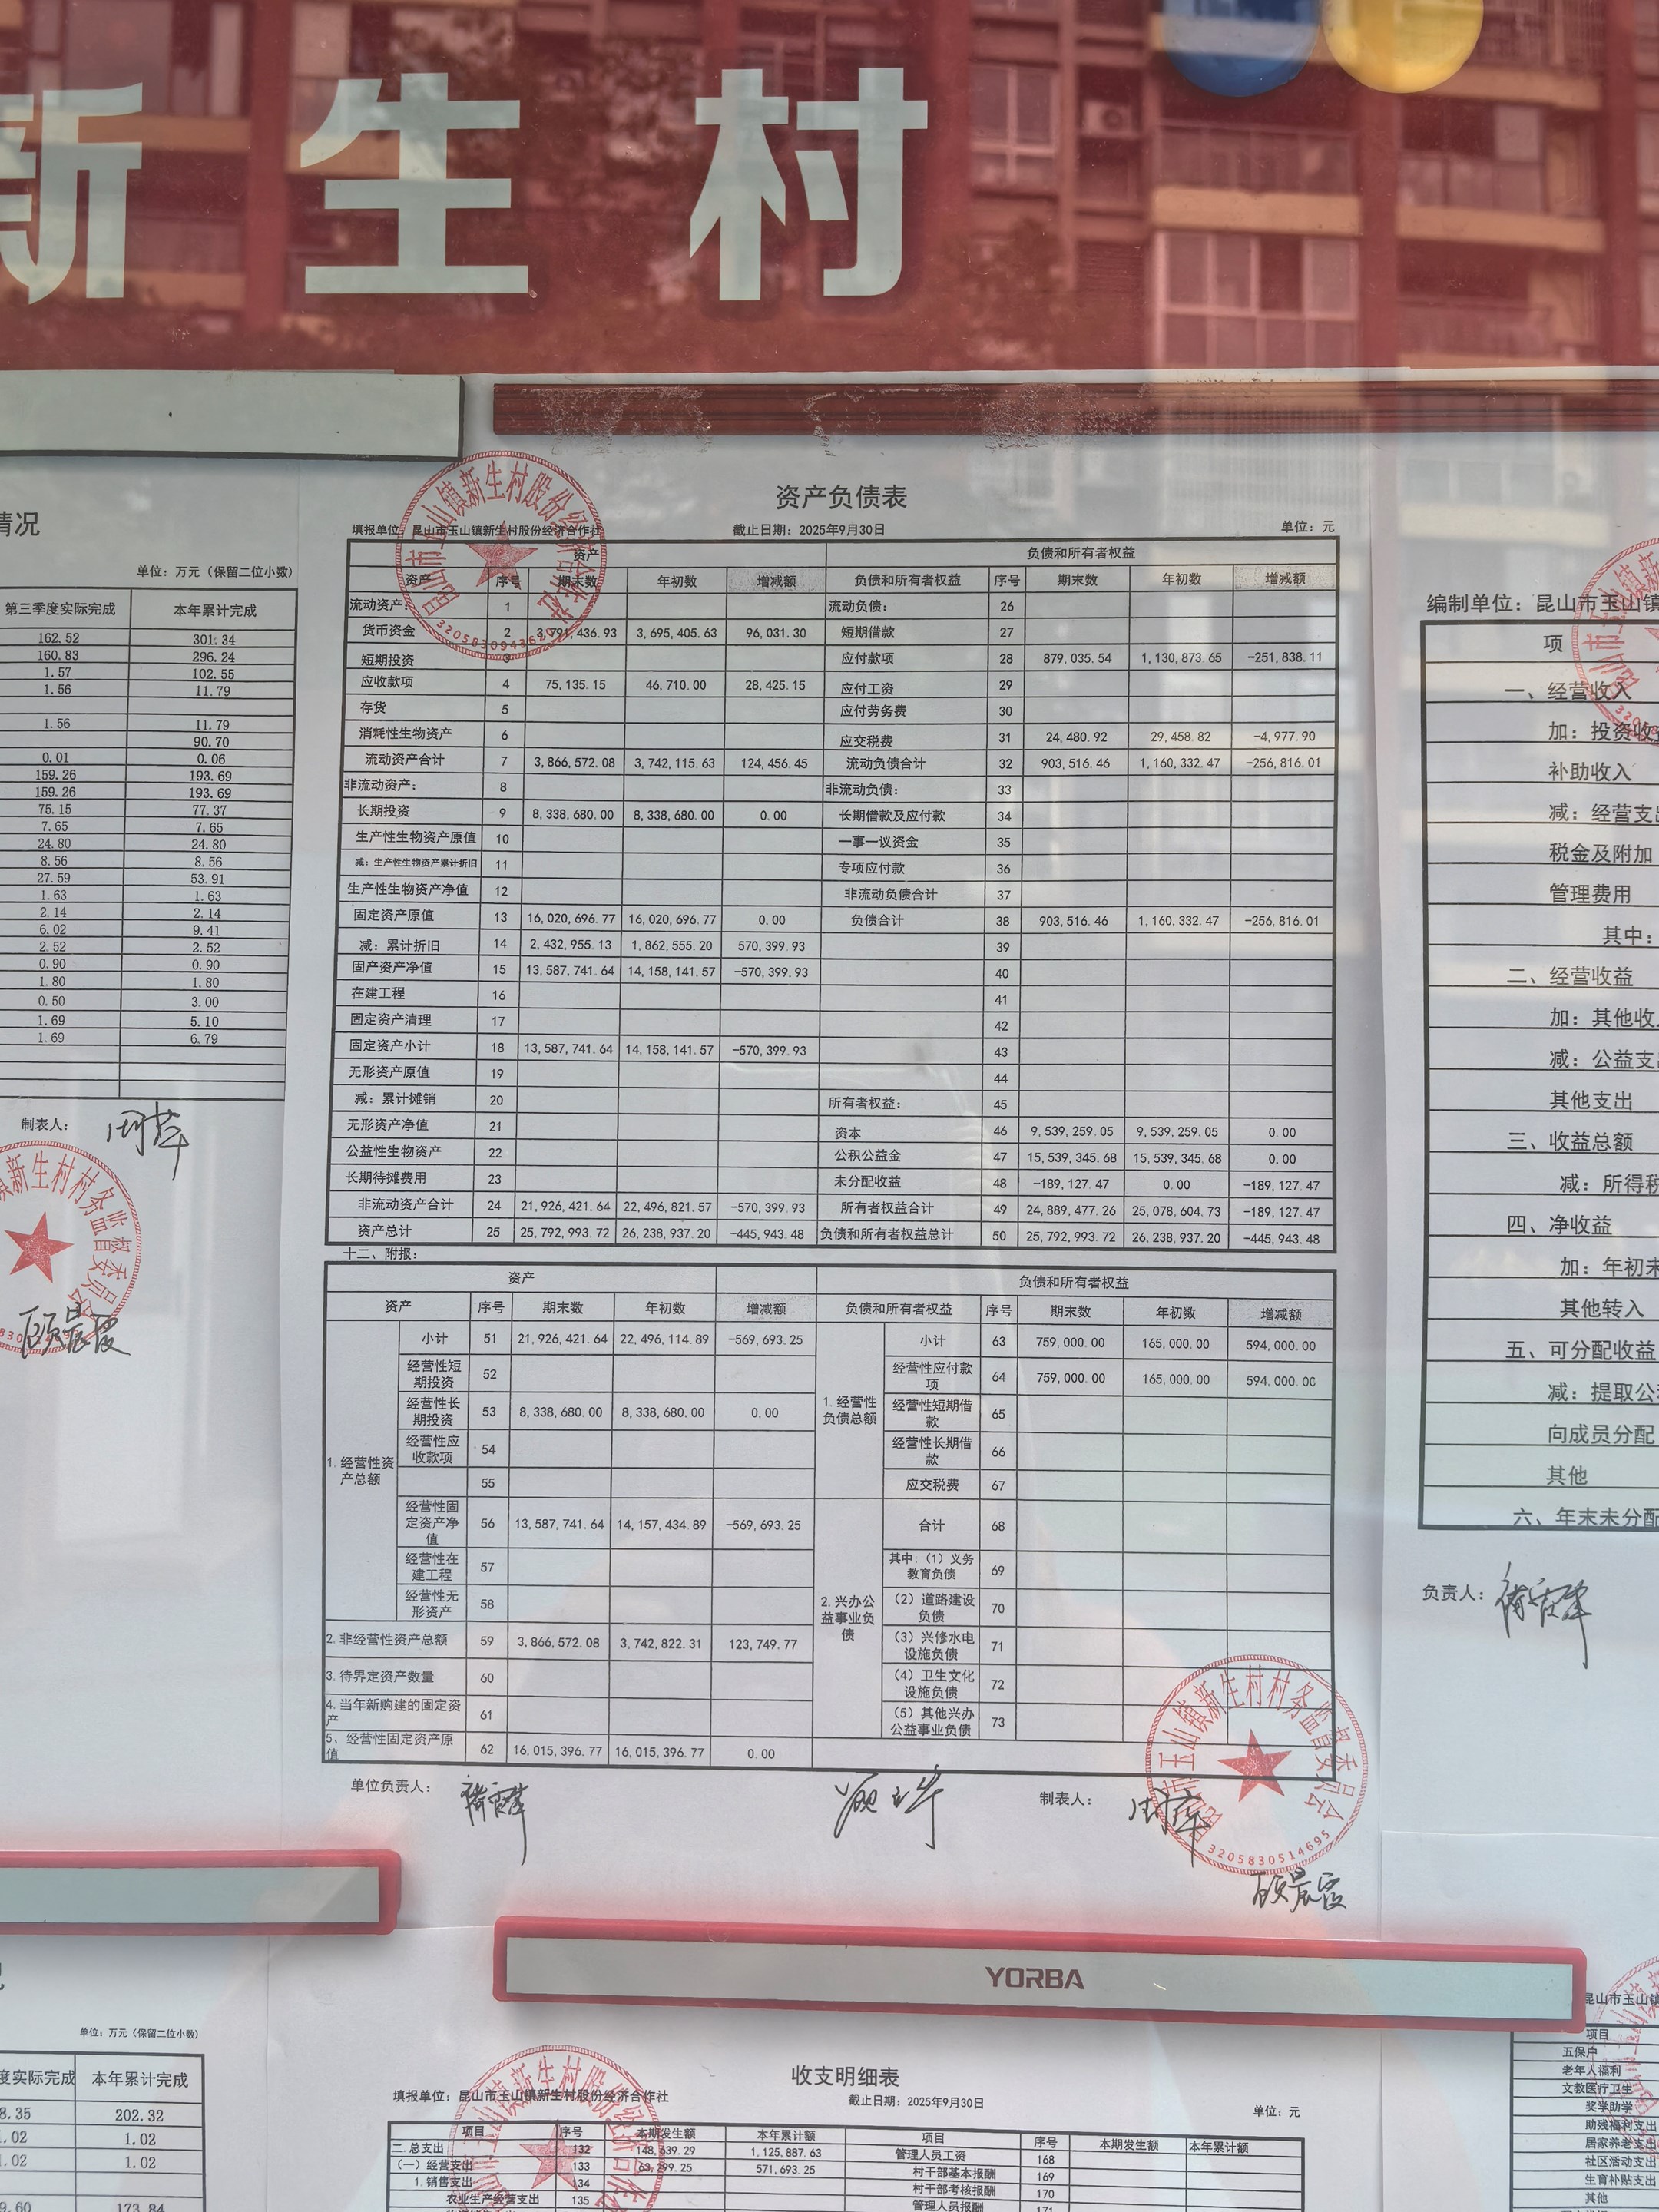 新 生 村
情况
单位：万元（保留二位小数）
第三季度实际完成 本年累计完成
162.52 301.34
160.83 296.24
1.57 102.55
1.56 11.79
1.56 11.79
90.70
0.01 0.06
159.26 193.69
159.26 193.69
75.15 77.37
7.65 7.65
24.80 24.80
8.56 8.56
27.59 53.91
1.63 1.63
2.14 2.14
6.02 9.41
2.52 2.52
0.90 0.90
1.80 1.80
0.50 3.00
1.69 5.10
1.69 6.79
制表人：
资产负债表
填报单位：昆山市玉山镇新生村股份经济合作社 截止日期：2025年9月30日 单位：元
资产 负债和所有者权益
资产 序号 期末数 年初数 增减额 负债和所有者权益 序号 期末数 年初数 增减额
流动资产： 1 流动负债： 26
货币资金 2 3,791,436.93 3,695,405.63 96,031.30 短期借款 27
短期投资 3 应付款项 28 879,035.54 1,130,873.65 -251,838.11
应收款项 4 75,135.15 46,710.00 28,425.15 应付工资 29
存货 5 应付劳务费 30
消耗性生物资产 6 应交税费 31 24,480.92 29,458.82 -4,977.90
流动资产合计 7 3,866,572.08 3,742,115.63 124,456.45 流动负债合计 32 903,516.46 1,160,332.47 -256,816.01
非流动资产： 8 非流动负债： 33
长期投资 9 8,338,680.00 8,338,680.00 0.00 长期借款及应付款 34
生产性生物资产原值 10 一事一议资金 35
减：生产性生物资产累计折旧 11 专项应付款 36
生产性生物资产净值 12 非流动负债合计 37
固定资产原值 13 16,020,696.77 16,020,696.77 0.00 负债合计 38 903,516.46 1,160,332.47 -256,816.01
减：累计折旧 14 2,432,955.13 1,862,555.20 570,399.93 39
固产资产净值 15 13,587,741.64 14,158,141.57 -570,399.93 40
在建工程 16 41
固定资产清理 17 42
固定资产小计 18 13,587,741.64 14,158,141.57 -570,399.93 43
无形资产原值 19 44
减：累计摊销 20 所有者权益： 45
无形资产净值 21 资本 46 9,539,259.05 9,539,259.05 0.00
公益性生物资产 22 公积公益金 47 15,539,345.68 15,539,345.68 0.00
长期待摊费用 23 未分配收益 48 -189,127.47 0.00 -189,127.47
非流动资产合计 24 21,926,421.64 22,496,821.57 -570,399.93 所有者权益合计 49 24,889,477.26 25,078,604.73 -189,127.47
资产总计 25 25,792,993.72 26,238,937.20 -445,943.48 负债和所有者权益总计 50 25,792,993.72 26,238,937.20 -445,943.48
十二、附报：
资产 负债和所有者权益
资产 序号 期末数 年初数 增减额 负债和所有者权益 序号 期末数 年初数 增减额
1.经营性资产总额 小计 51 21,926,421.64 22,496,114.89 -569,693.25 1.经营性负债总额 小计 63 759,000.00 165,000.00 594,000.00
经营性短期投资 52 经营性应付款项 64 759,000.00 165,000.00 594,000.00
经营性长期投资 53 8,338,680.00 8,338,680.00 0.00 经营性短期借款 65
经营性应收款项 54 经营性长期借款 66
55 应交税费 67
经营性固定资产净值 56 13,587,741.64 14,157,434.89 -569,693.25 2.兴办公益事业负债 合计 68
经营性在建工程 57 其中：（1）义务教育负债 69
经营性无形资产 58 （2）道路建设负债 70
2.非经营性资产总额 59 3,866,572.08 3,742,822.31 123,749.77 （3）兴修水电设施负债 71
3.待界定资产数量 60 （4）卫生文化设施负债 72
4.当年新购建的固定资产 61 （5）其他兴办公益事业负债 73
5、经营性固定资产原值 62 16,015,396.77 16,015,396.77 0.00
单位负责人： 制表人：
昆山市玉山镇新生村村务监督委员会
3205830514695
顾晨霞
编制单位：昆山市玉山镇
项
一、经营收入
加：投资收
补助收入
减：经营支出
税金及附加
管理费用
其中：
二、经营收益
加：其他收
减：公益支
其他支出
三、收益总额
减：所得税
四、净收益
加：年初未
其他转入
五、可分配收益
减：提取公
向成员分配
其他
六、年末未分配
负责人：
YORBA
单位：万元（保留二位小数）
度实际完成 本年累计完成
8.35 202.32
1.02 1.02
1.02 1.02
9.60 173.84
收支明细表
填报单位：昆山市玉山镇新生村股份经济合作社 截止日期：2025年9月30日 单位：元
项目 序号 本期发生额 本年累计额 项目 序号 本期发生额 本年累计额
二.总支出 132 148,639.29 1,125,887.63 管理人员工资 168
（一）经营支出 133 63,299.25 571,693.25 村干部基本报酬 169
1.销售支出 134 村干部考核报酬 170
农业生产经营支出 135 管理人员报酬 171
昆山市玉山镇
项目
五保户
老年人福利
文教医疗卫生
奖学助学
助残福利支出
居家养老支出
社区活动支出
生育补贴支出
其他